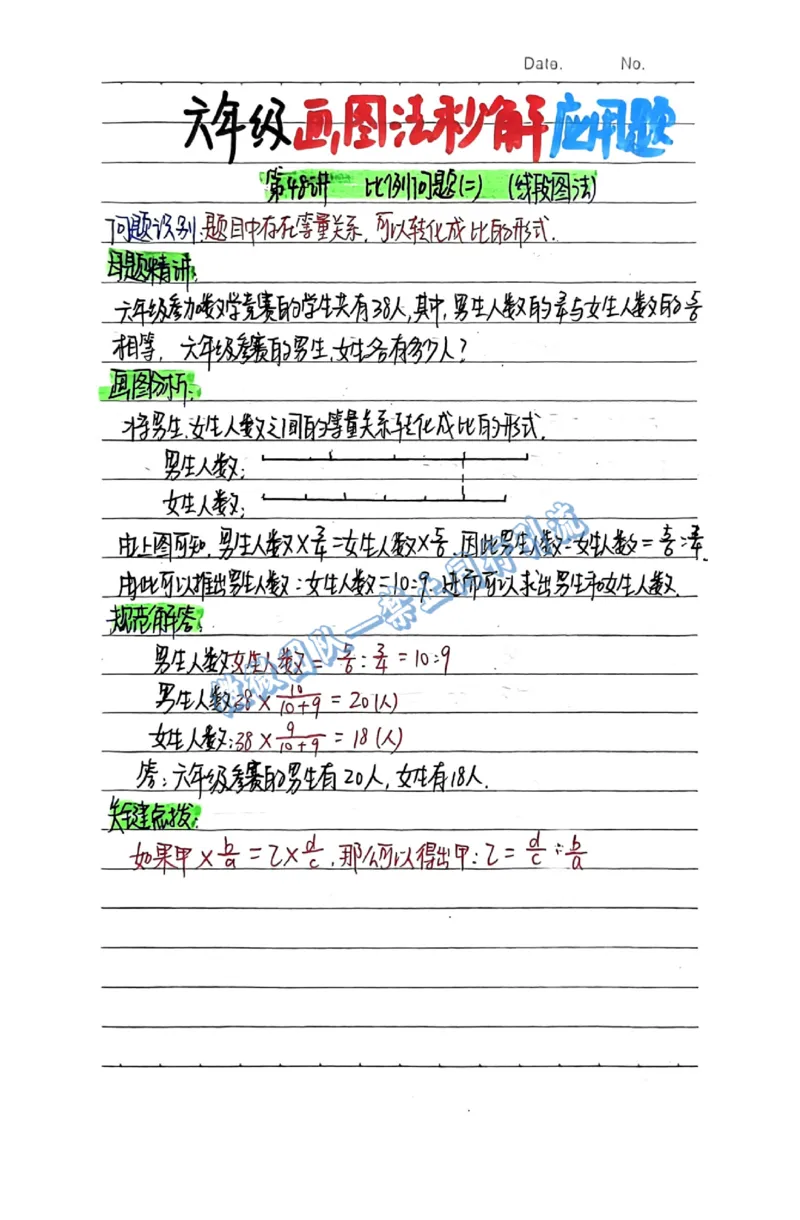 Date. No.
六年级画图法秒解应用题
第48讲 比例问题(二) (线段图法)
问题识别:题目中存在等量关系,可以转化成比的形式.
母题精讲:
六年级参加数学竞赛的学生共有38人,其中,男生人数的3/4与女生人数的5/6
相等,六年级参赛的男生,女生各有多少人?
画图分析:
将男生、女生人数之间的等量关系转化成比的形式.
男生人数:
女生人数:
由上图可知,男生人数×3/4=女生人数×5/6,因此男生人数:女生人数=5/6:3/4.
由此可以推出男生人数:女生人数=10:9,进而可以求出男生和女生人数.
规范解答:
男生人数:女生人数=5/6:3/4=10:9
男生人数:38×10/(10+9)=20(人)
女生人数:38×9/(10+9)=18(人)
答:六年级参赛的男生有20人,女生有18人.
关键点拨:
如果甲×b/a=乙×d/c,那么可以得出甲:乙=d/c:b/a